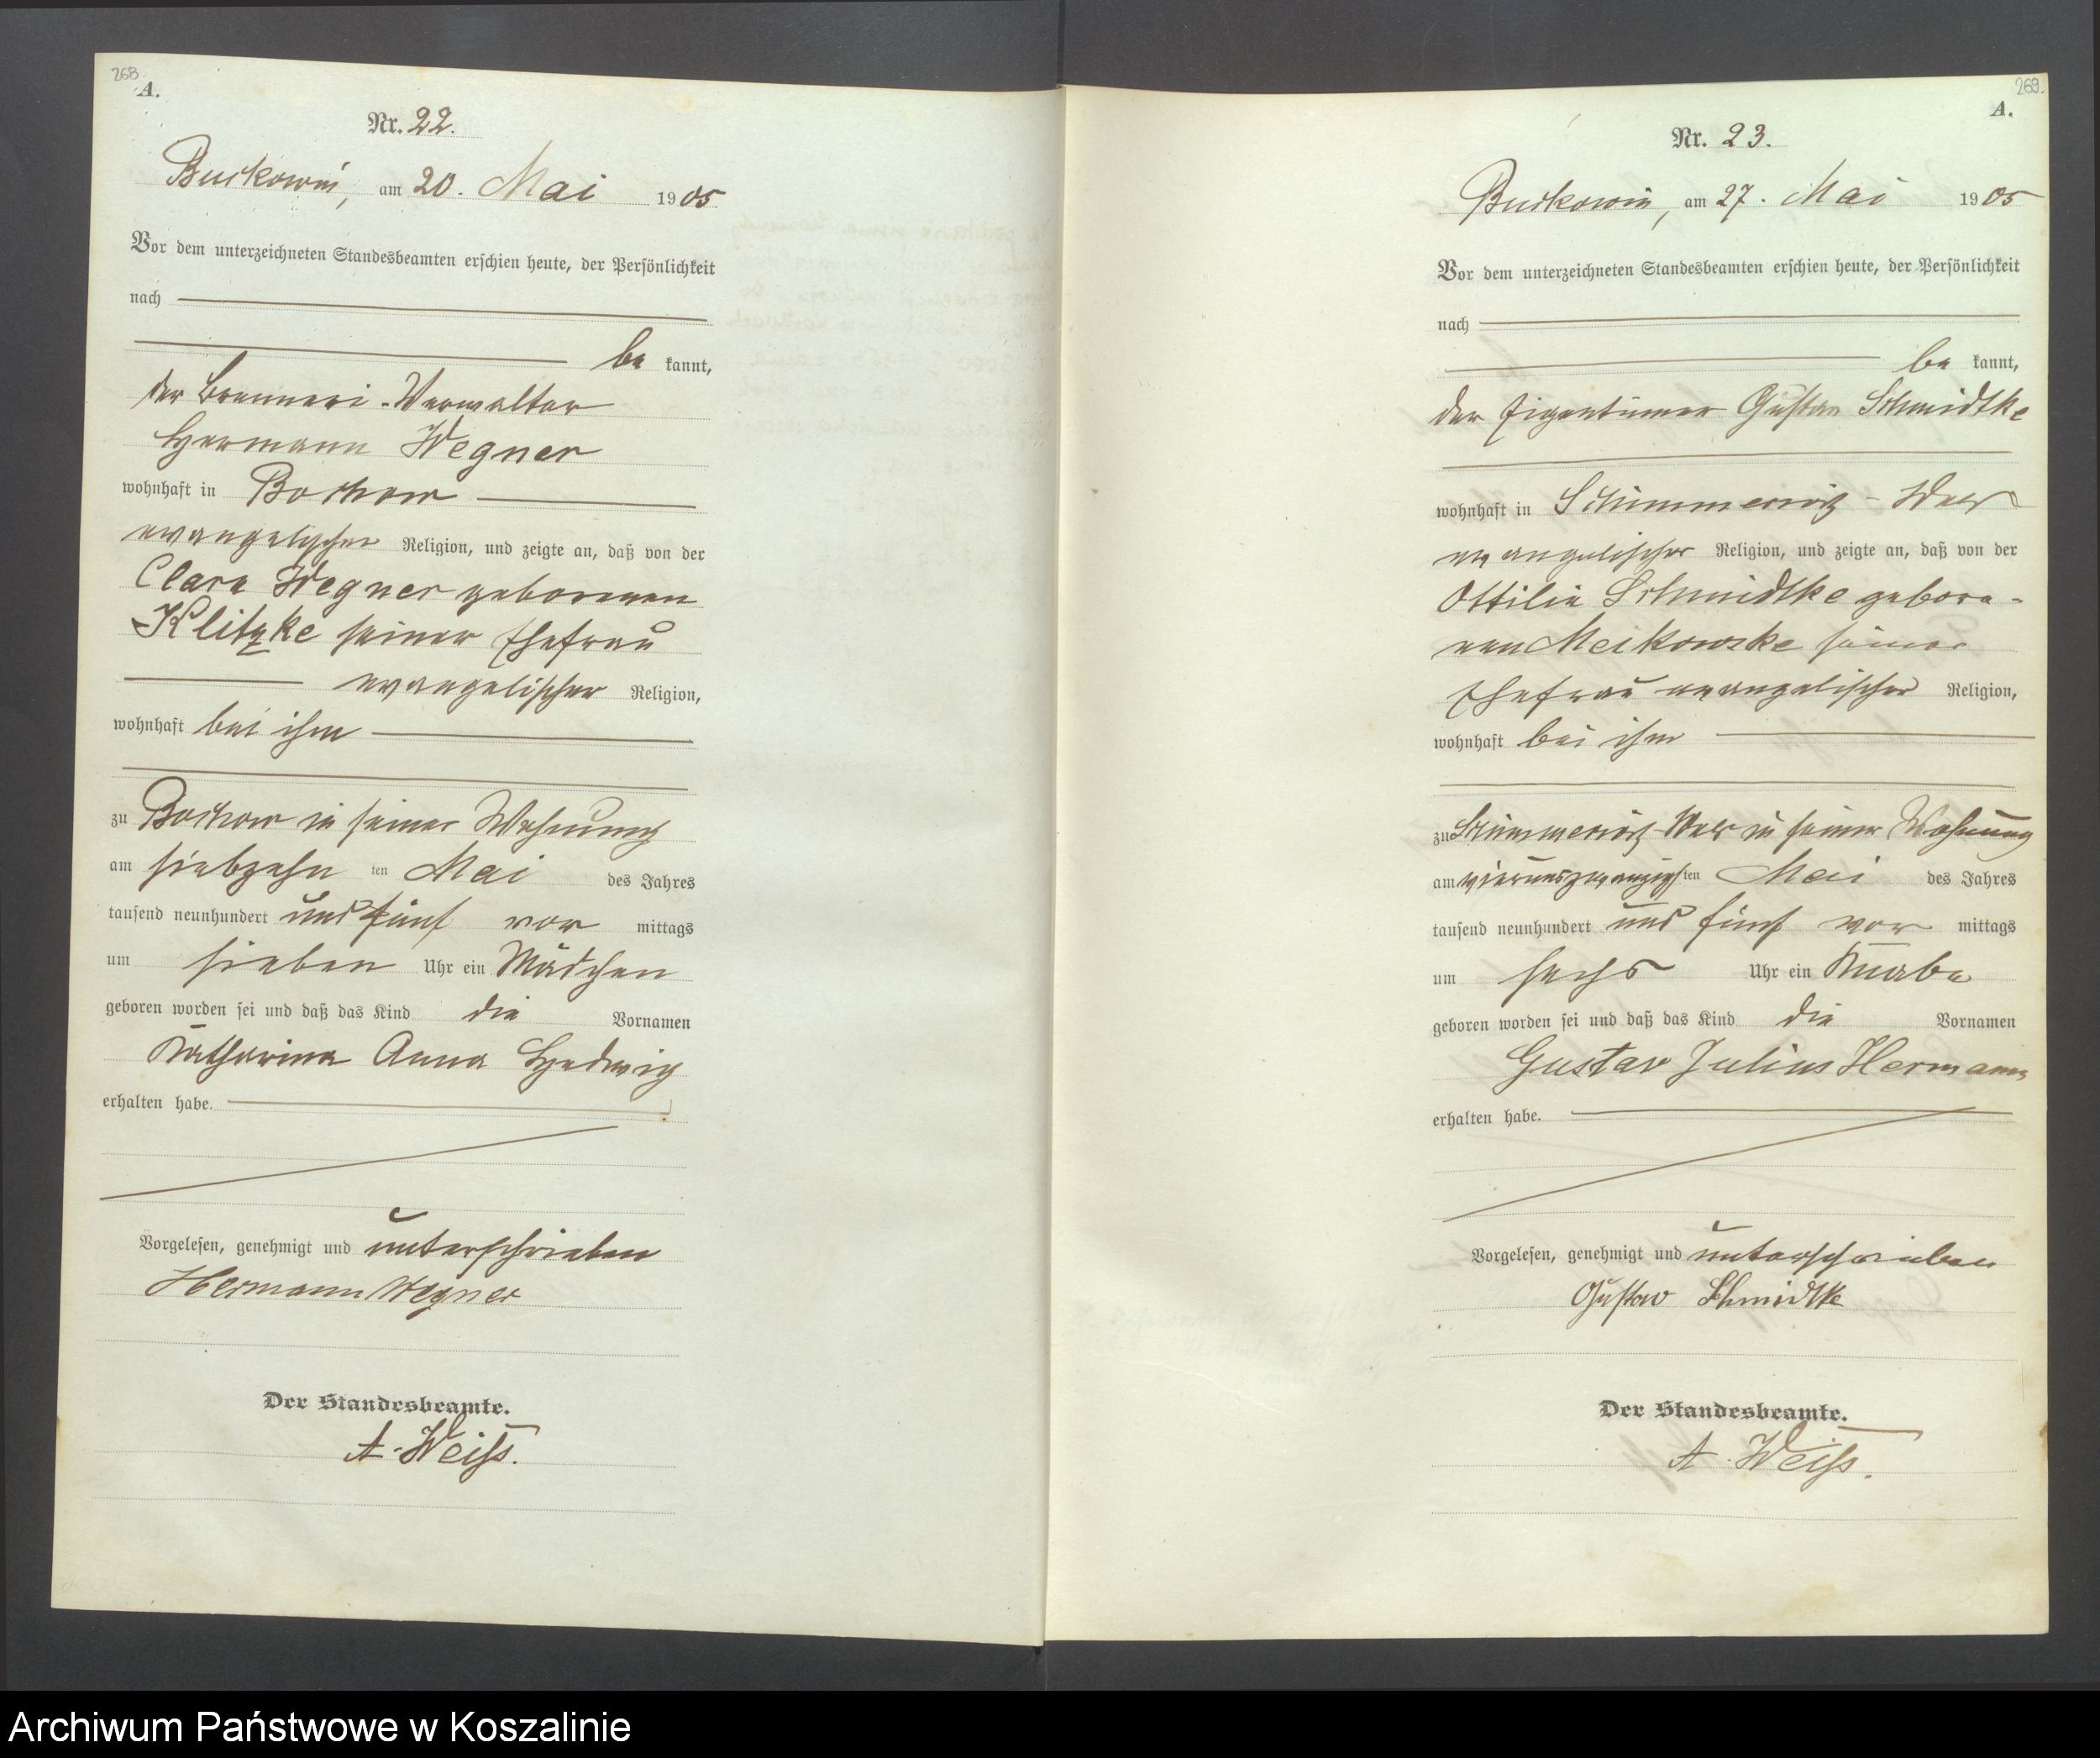 268.
A.
Nr. 22.
Buckowin, am 20. Mai 1905
Vor dem unterzeichneten Standesbeamten erschien heute, der Persönlichkeit
nach
be kannt,
der Brennerei-Verwalter
Hermann Wegner
wohnhaft in Bochow
evangelischer Religion, und zeigte an, daß von der
Clara Wegner geborenen
Klitzke seiner Ehefrau
evangelischer Religion,
wohnhaft bei ihm
zu Bochow in seiner Wohnung
am siebzehn ten Mai des Jahres
tausend neunhundert und fünf vor mittags
um sieben Uhr ein Mädchen
geboren worden sei und daß das Kind die Vornamen
Katharina Anna Hedwig
erhalten habe.
Vorgelesen, genehmigt und unterschrieben
Hermann Wegner
Der Standesbeamte.
A. Weiß.
269.
A.
Nr. 23.
Buckowin, am 27. Mai 1905
Vor dem unterzeichneten Standesbeamten erschien heute, der Persönlichkeit
nach
be kannt,
der Eigentümer Gustav Schmidtke
wohnhaft in
evangelischer Religion, und zeigte an, daß von der
Ottilie Schmidtke gebore-
nen Meikowske seiner
Ehefrau evangelischer Religion,
wohnhaft bei ihm
zu in seiner Wohnung
am vierundzwanzigsten Mai des Jahres
tausend neunhundert und fünf vor mittags
um sechs Uhr ein Knabe
geboren worden sei und daß das Kind die Vornamen
Gustav Julius Hermann
erhalten habe.
Vorgelesen, genehmigt und unterschrieben
Gustav Schmidtke
Der Standesbeamte.
A. Weiß.
Archiwum Państwowe w Koszalinie